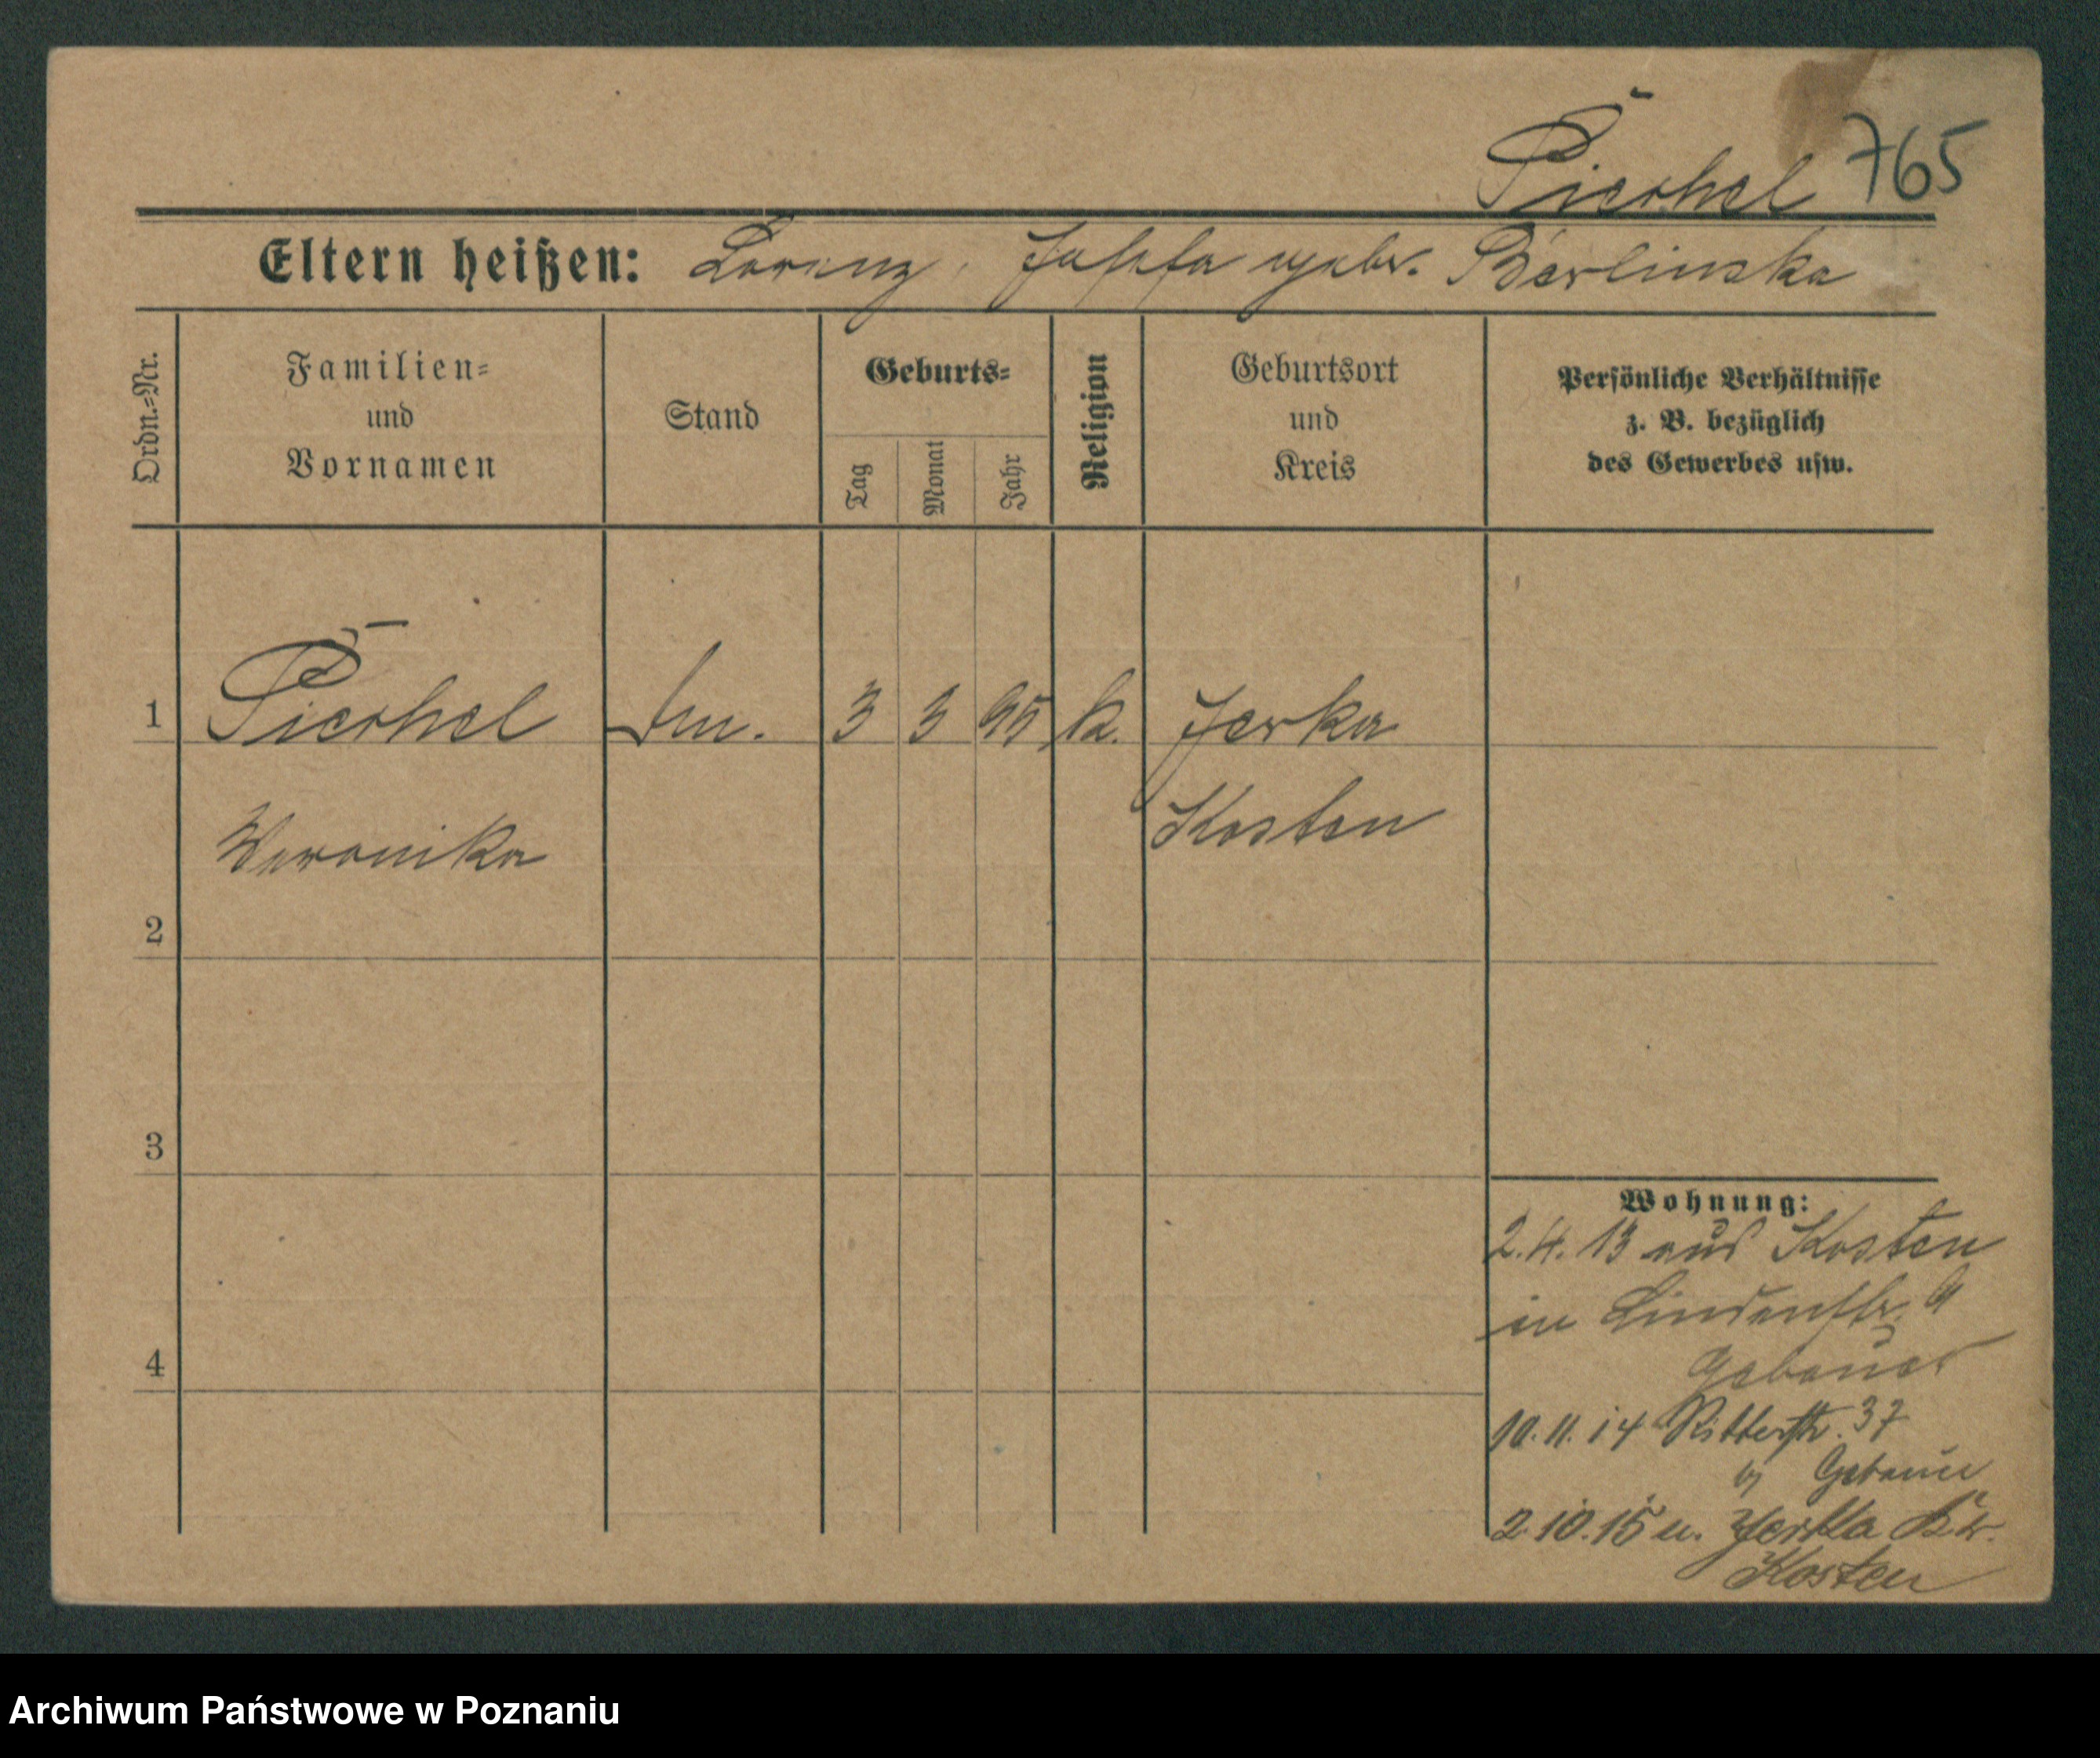 Pierhel 765
Eltern heißen: Lorenz, Josefa gebr. Berlinska
Ordn.=Nr.
Familien=
und
Vornamen
Stand
Geburts=
Tag
Monat
Jahr
Religion
Geburtsort
und
Kreis
Persönliche Verhältnisse
z. B. bezüglich
des Gewerbes usw.
1 Pierhel 3 3 95 k. Jerka
Kosten
Weronika
2
3
4
Wohnung:
2.4.13 aus Kosten
in Lindenstr. 9
Gebauer
10.11.14 Ritterstr. 37
bj Gebauer
2.10.15 n. Jerka Kr.
Kosten
Archiwum Państwowe w Poznaniu